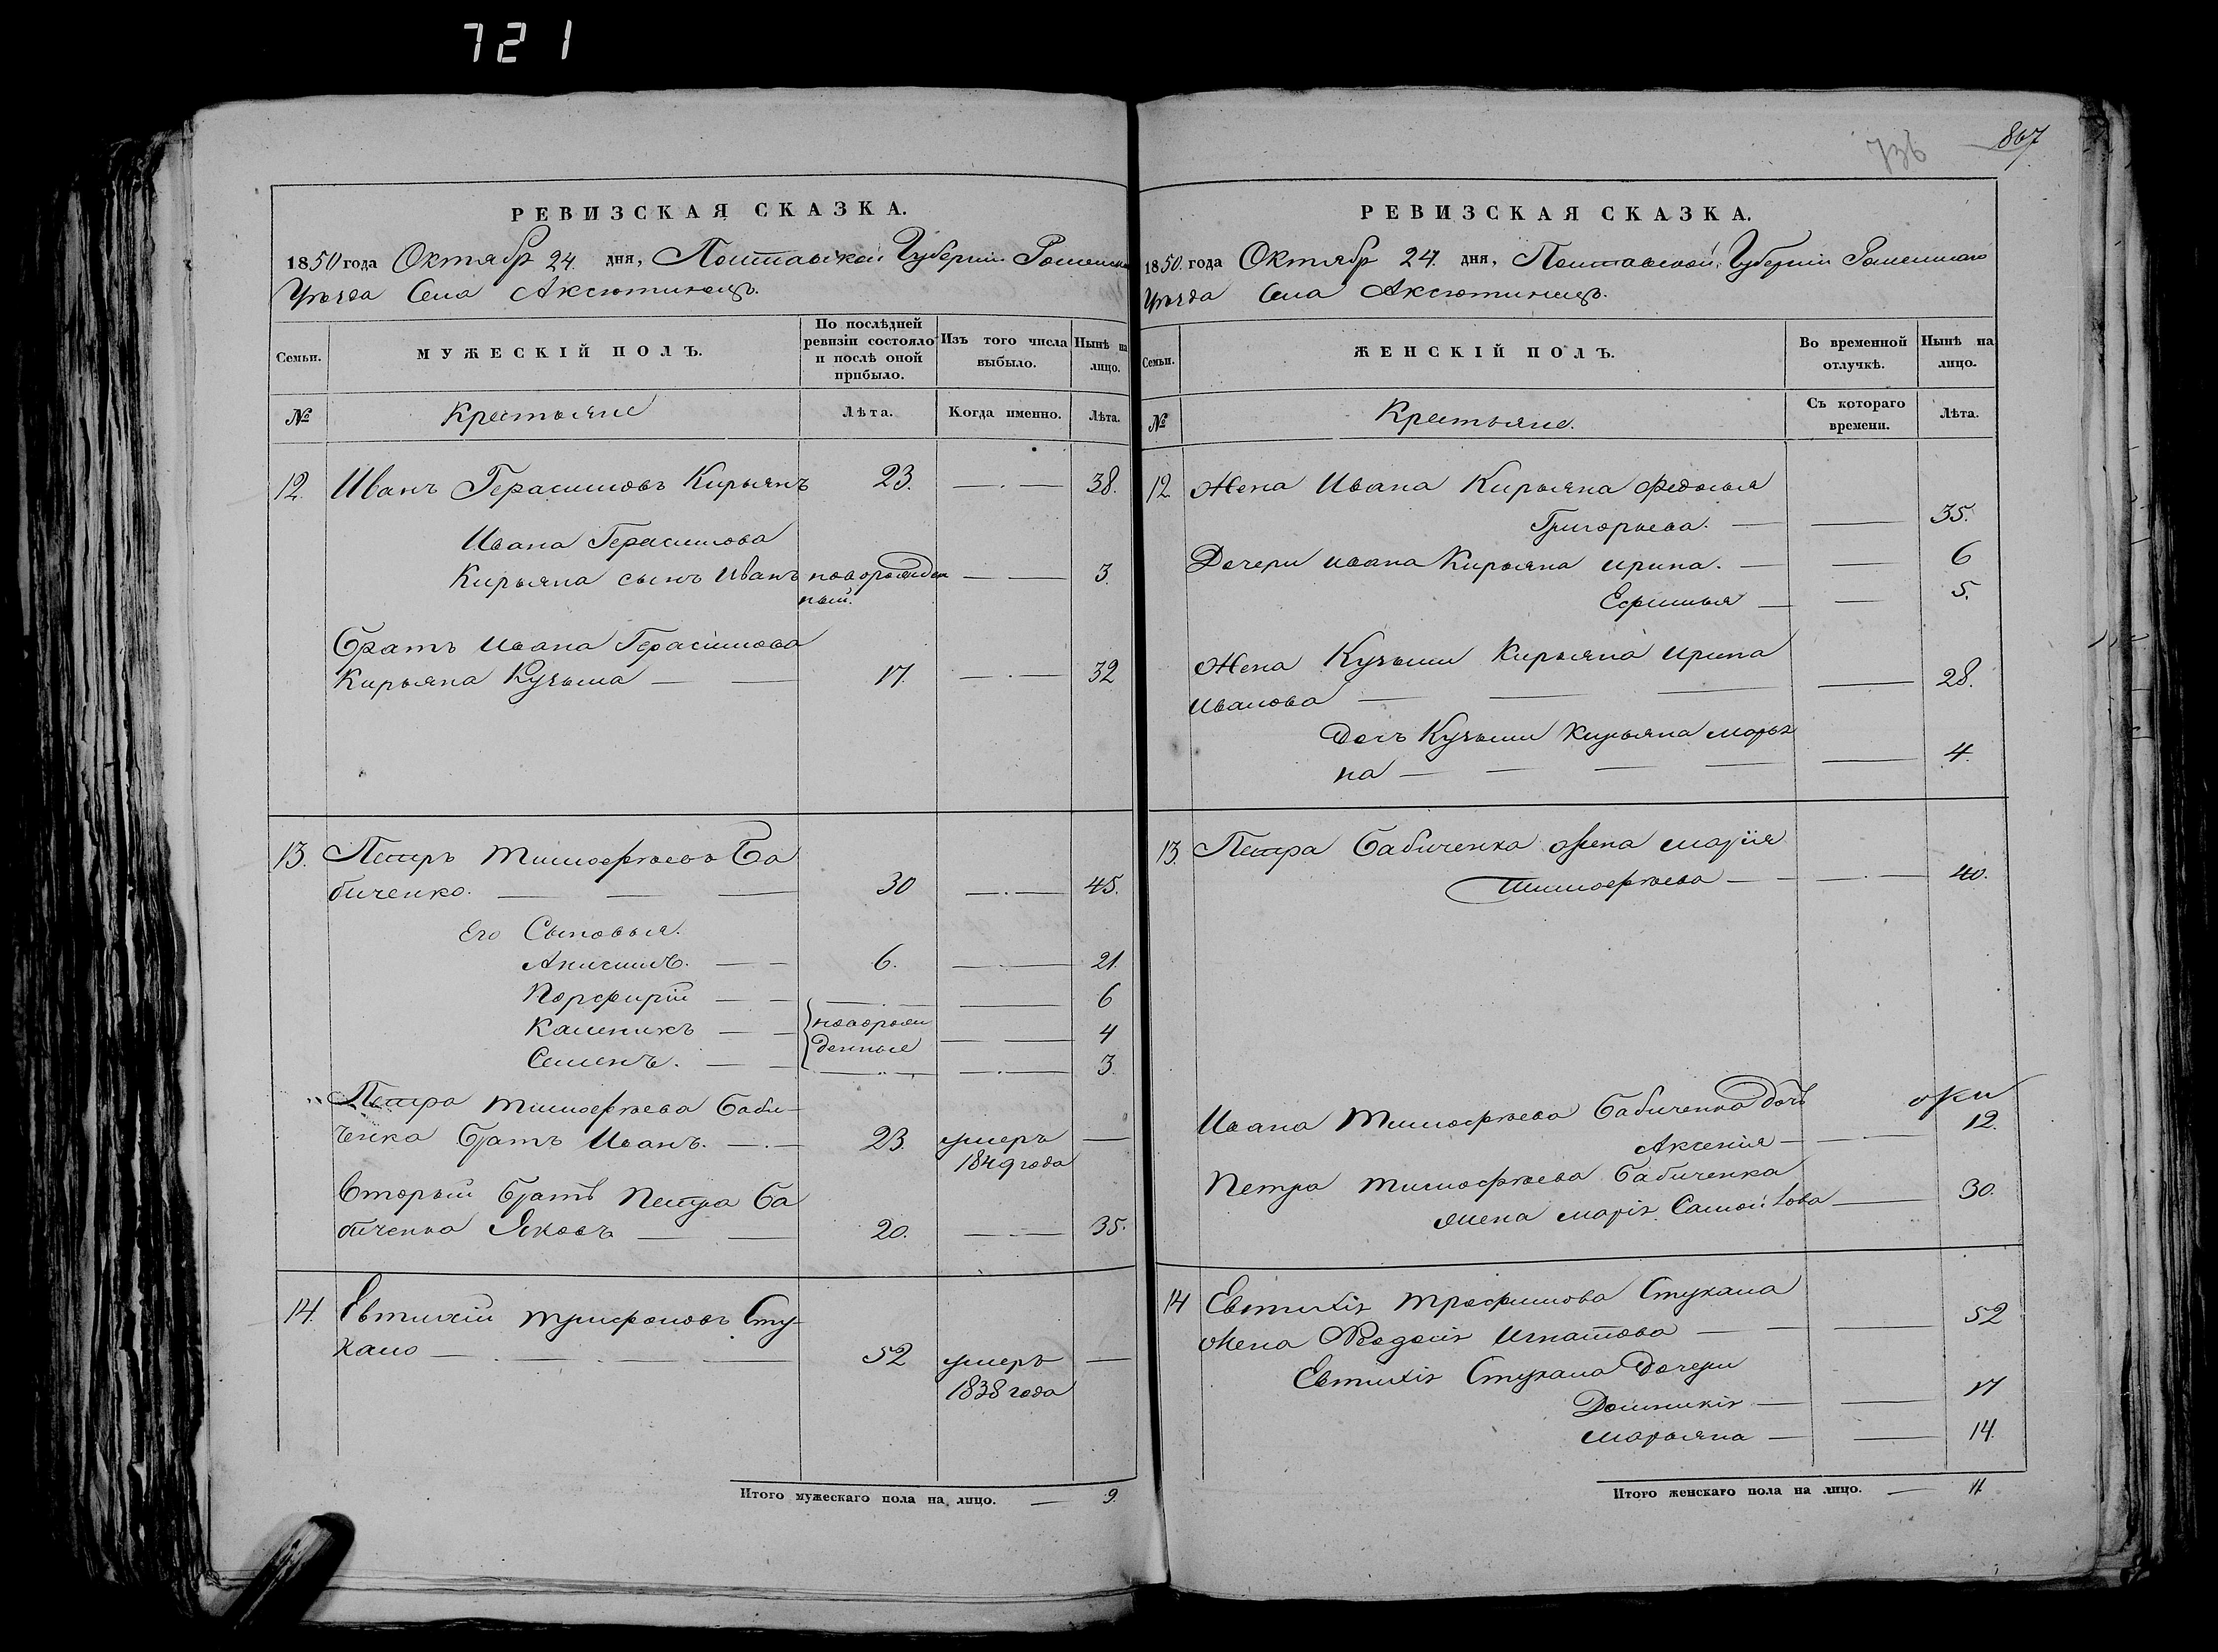 721
736
867
РЕВИЗСКАЯ СКАЗКА.
1850 года Октября 24. дня, Полтавской Губернии Роменскаго
Уѣзда Села Аксютинецъ.
Семьи.
МУЖЕСКІЙ ПОЛЪ.
По послѣдней ревизіи состояло и послѣ оной прибыло.
Изъ того числа выбыло.
Нынѣ на лицо.
№
Крестьяне
Лѣта.
Когда именно.
Лѣта.
12. Иванъ Герасимовъ Кирьянъ 23. 38.
Ивана Герасимова
Кирьяна сынъ Иванъ новорожден 3.
ный.
Братъ Ивана Герасимова
Кирьяна Кузьма 17. 32
13. Петръ Тимофѣевъ Ба
биченко. 30 45.
Его Сыновья.
6. 21.
Порфирій 6
Каленикъ новорож 4
денные
Семенъ. 3.
Петра Тимофѣева Баби-
ченка Братъ Иванъ. 23. умеръ
1849 года
Вторый Братъ Петра Ба
биченка Яковъ 20. 35.
14. Евтихій Трифоновъ Сту-
кало 52 умеръ
1838 года
Итого мужескаго пола на лицо. 9.
РЕВИЗСКАЯ СКАЗКА.
1850. года Октября 24. дня, Полтавской Губерніи Роменскаго
Уѣзда Села Аксютинецъ.
Семьи.
ЖЕНСКІЙ ПОЛЪ.
Во временной отлучкѣ.
Нынѣ на лицо.
№
Крестьяне.
Съ котораго времени.
Лѣта.
12 Жена Ивана Кирьяна Федосья
Григорьева. 35.
Дочери Ивана Кирьяна Ирина. 6
Ефимья 5.
Жена Кузьмы Кирьяна Ирина
Иванова 28.
Дочь Кузьмы Кирьяна Марья
на 4.
13. Петра Бабиченка Жена Марія
Тимофѣева 40.
Ивана Тимофѣева Бабиченка дочь
Аксенія 12.
Петра Тимофѣева Бабиченка
жена Марія Самойлова 30.
14 Евтихія Трофимова Стукала
жена Феодосія Игнатова 52
Евтихія Стукала Дочери
Домникія 17
Марьяна 14.
Итого женскаго пола на лицо. 11